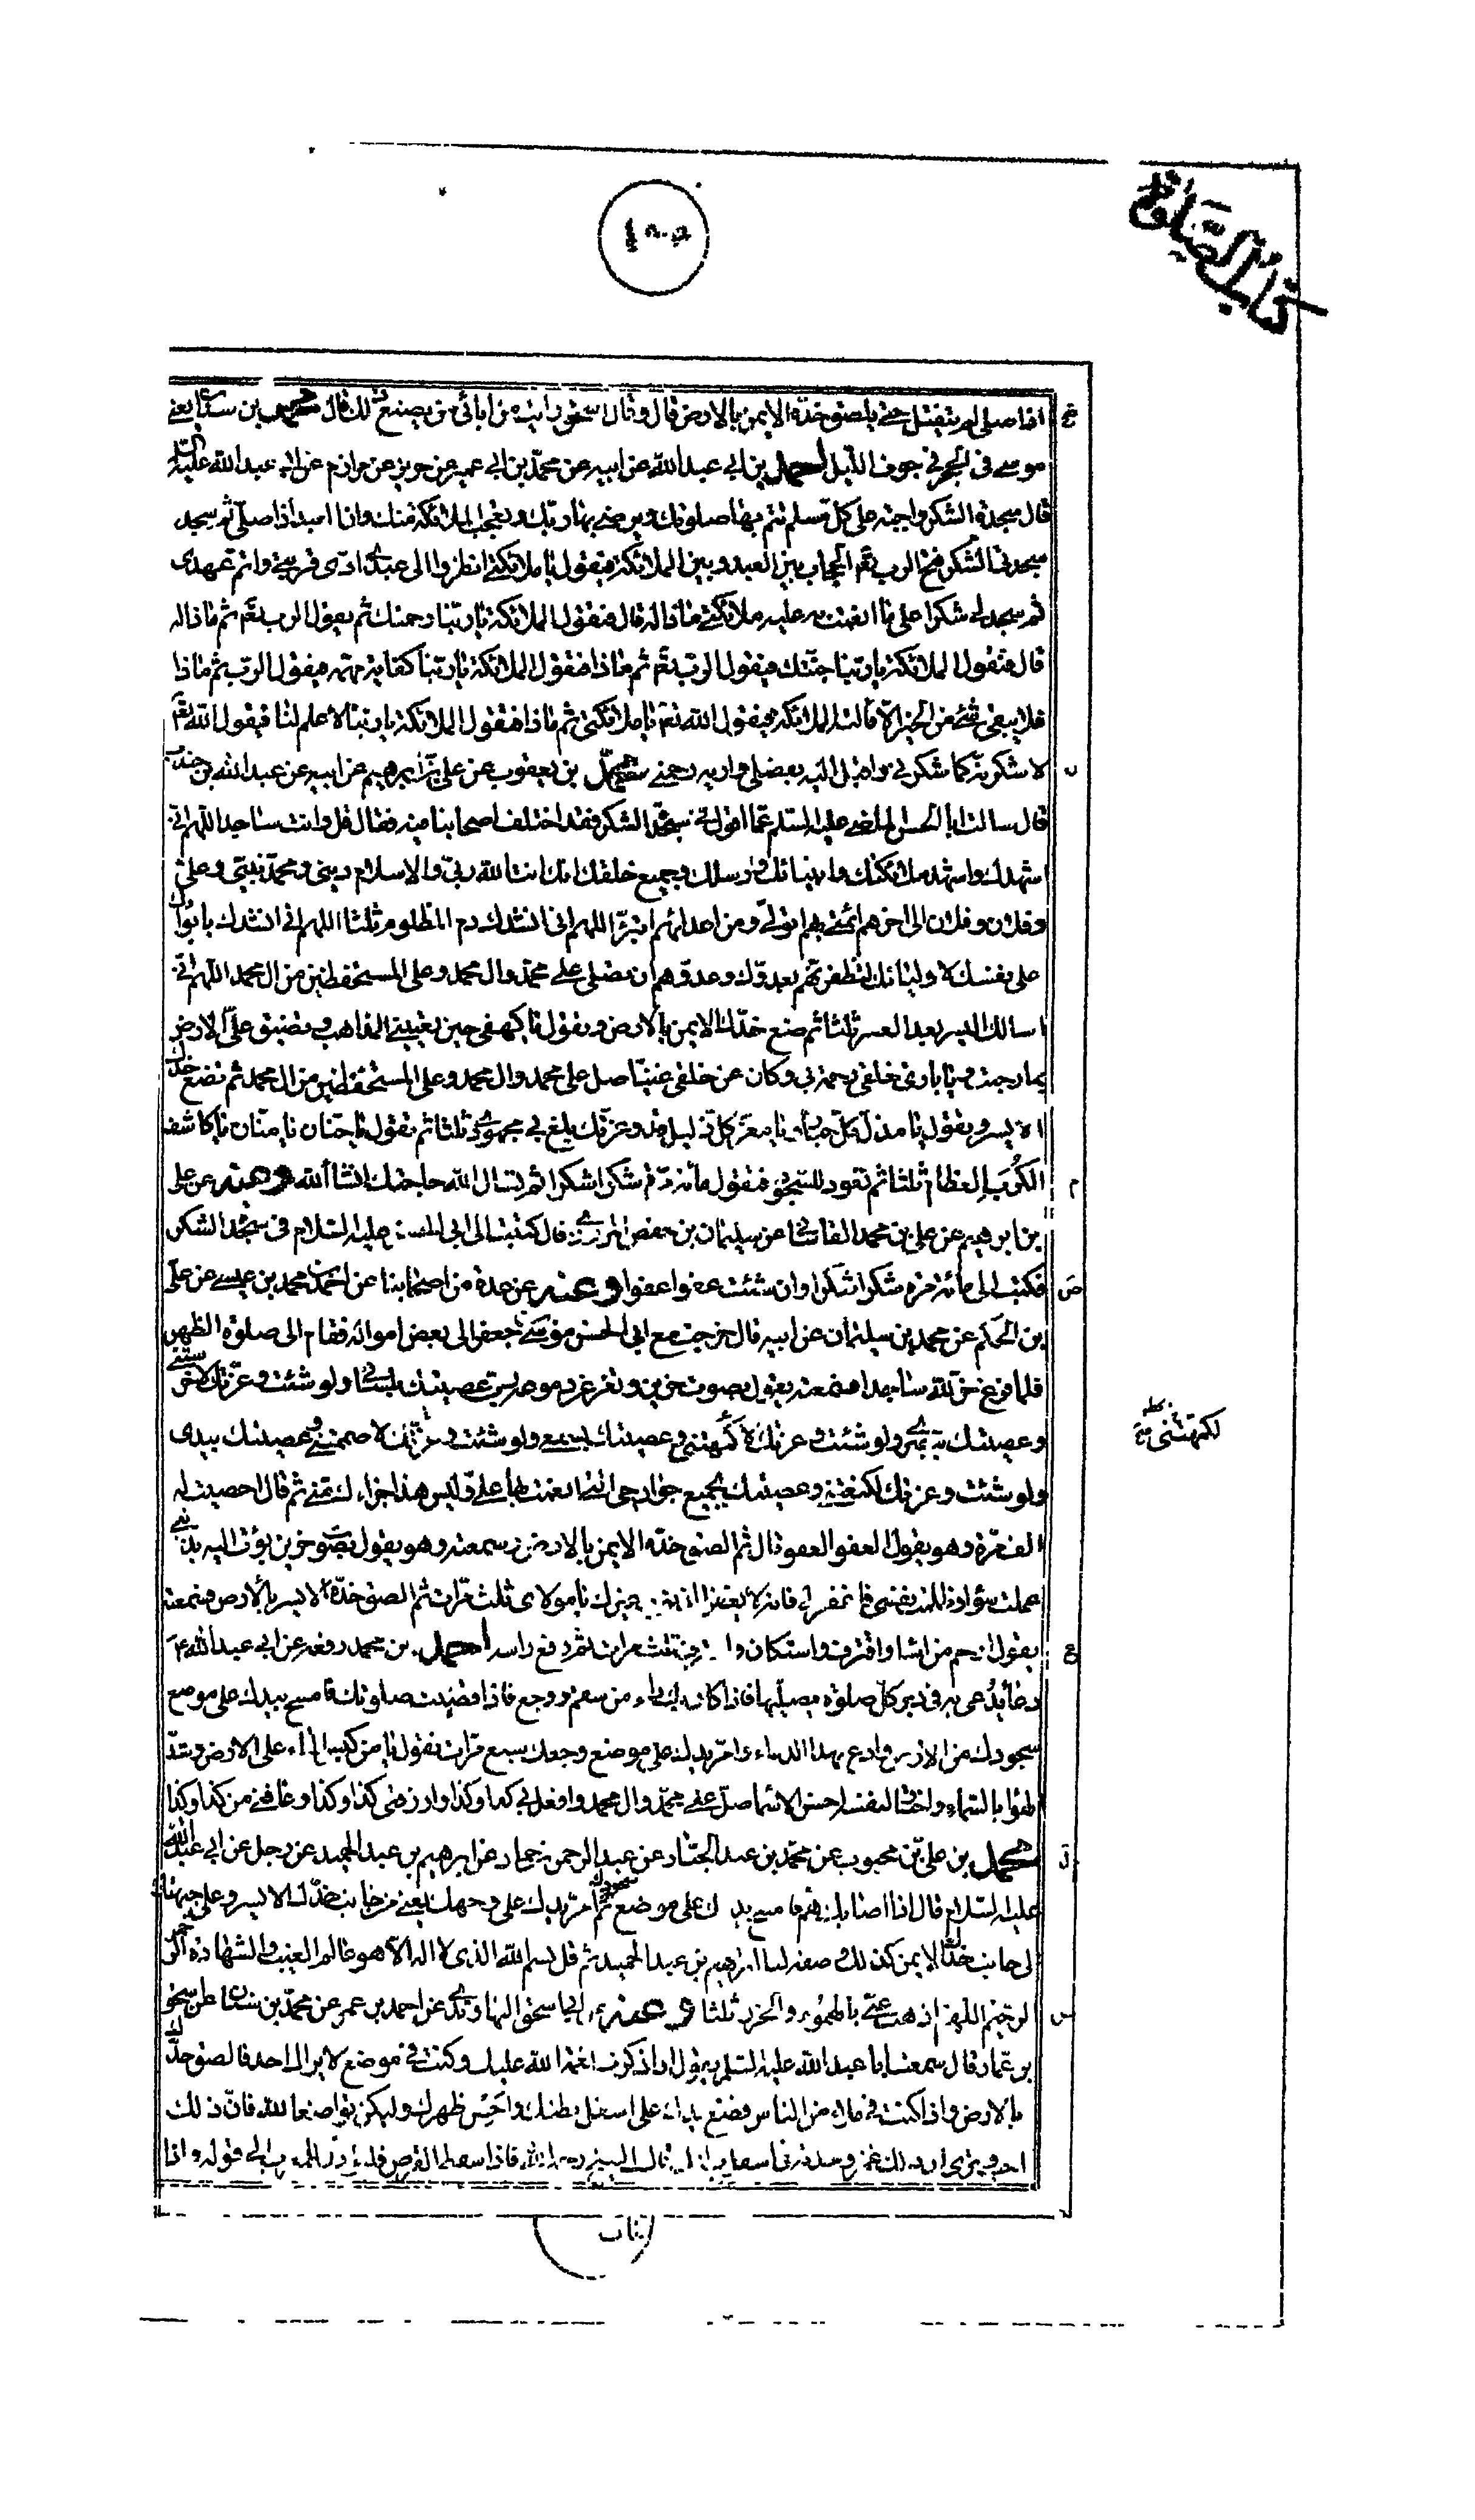 كتاب الصلوة
اذا صلى لم ينفتل حتى يلصق خده الايمن بالارض قال وقال اسحق رايت من ابائى من يصنع ذلك قال محمد بن سنان يعنى
موسى فى الحجر فى جوف الليل احمد بن ابى عبد الله عن ابيه عن محمد بن ابى عمير عن حريز عن مرازم عن ابى عبد الله عليه السلام
قال سجدة الشكر واجبة على كل مسلم تتم بها صلوتك وترضى بها ربك وتعجب الملائكة منك وان العبد اذا صلى ثم سجد
سجدة الشكر فتح الرب تعم الحجاب بين العبد وبين الملائكة فيقول يا ملائكتى انظروا الى عبدى ادى فرضى واتم عهدى
ثم سجد لى شكرا على ما انعمت به عليه ملائكتى ماذا له قال فتقول الملائكة يا ربنا رحمتك ثم يقول الرب تعم ثم ماذا له
قال فتقول الملائكة يا ربنا جنتك فيقول الرب تعم ثم ماذا فتقول الملائكة يا ربنا كفاية مهمه فيقول الرب ثم ماذا
فلا يبقى شىء من الخير الا قالته الملائكة فيقول الله تعم يا ملائكتى ثم ماذا فتقول الملائكة يا ربنا لا علم لنا فيقول الله تعم
لاشكرنه كما شكرنى واقبل اليه بفضلى واريه رحمتى محمد بن يعقوب عن على بن ابرهيم عن ابيه عن عبد الله بن جندب
قال سالت ابا الحسن الماضى عليه السلم عما اقول فى سجدة الشكر فقد اختلف اصحابنا فيه فقال قل وانت ساجد اللهم انى
اشهدك واشهد ملائكتك وانبيائك ورسلك وجميع خلقك انك انت الله ربى والاسلام دينى ومحمد نبيى وعلى
وفلان وفلان الى اخرهم ائمتى بهم اتولى ومن اعدائهم اتبرأ اللهم انى انشدك دم المظلوم ثلثا اللهم انى انشدك بايوائك
على نفسك لاوليائك لتظفرنهم بعدوك وعدوهم ان تصلى على محمد وال محمد وعلى المستحفظين من ال محمد اللهم انى
اسالك اليسر بعد العسر ثلثا ثم ضع خدك الايمن بالارض وتقول يا كهفى حين تعيينى المذاهب وتضيق على الارض
بما رحبت ويا بارئ خلقى رحمة بى وكان عن خلقى غنيا صل على محمد وال محمد وعلى المستحفظين من ال محمد ثم تضع خدك
الايسر وتقول يا مذل كل جبار يا معز كل ذليل قد وعزتك بلغ بى مجهودى ثلثا ثم تقول يا حنان يا منان يا كاشف
الكرب العظام ثلثا ثم تعود للسجود فتقول مائة مرة شكرا شكرا ثم تسال الله حاجتك انشا الله وعنه عن على
بن ابرهيم عن على بن محمد القاسانى عن سليمان بن حفص المروزى قال كتبت الى ابى الحسن عليه السلام فى سجدة الشكر
فكتب الى مائة مرة شكرا شكرا وان شئت عفوا عفوا وعنه عن عدة من اصحابنا عن احمد بن محمد بن عيسى عن على
بن الحكم عن محمد بن سليمان عن ابيه قال خرجت مع ابى الحسن موسى بن جعفر الى بعض امواله فقام الى صلوة الظهر
فلما فرغ خر لله ساجدا فسمعته يقول بصوت حزين وتغرغر دموعه رب عصيتك بلسانى ولو شئت وعزتك لاخرستنى
وعصيتك ببصرى ولو شئت وعزتك لاكمهتنى وعصيتك بسمعى ولو شئت وعزتك لاصممتنى وعصيتك بيدى
لكمهتنى
ولو شئت وعزتك لكنعتنى وعصيتك بجميع جوارحى التى انعمت بها على وليس هذا جزاءك منى ثم قال احصيت له
الف مرة وهو يقول العفو العفو قال ثم الصق خده الايمن بالارض فسمعته وهو يقول بصوت حزين بؤت اليك بذنبى
عملت سوءا وظلمت نفسى فاغفر لى فانه لا يغفر الذنوب غيرك يا مولاى ثلث مرات ثم الصق خده الايسر بالارض فسمعته
يقول ارحم من اساء واقترف واستكان واعترف ثلث مرات ثم رفع راسه احمد بن محمد رفعه عن ابى عبد الله ع
دعا يدعى به فى دبر كل صلوة يصليها فاذا كان بك داء من سقم ووجع فاذا قضيت صلوتك فامسح بيدك على موضع
سجودك من الارض وادع بهذا الدعاء وامر بيدك على موضع وجعك سبع مرات تقول يا من كبس الارض على الماء وسد
الهواء بالسماء واختار لنفسه احسن الاسماء صل على محمد وال محمد وافعل بى كذا وكذا وارزقنى كذا وكذا وعافنى من كذا وكذا
محمد بن على بن محبوب عن محمد بن عبد الجبار عن عبد الرحمن بن حماد عن ابرهيم بن عبد الحميد عن رجل عن ابى عبد الله
عليه السلام قال اذا اصابك هم فامسح يدك على موضع سجودك ثم امر يدك على وجهك يعنى من جانب خدك الايسر وعلى جبهتك
الى جانب خدك الايمن كذلك وصفه لنا ابرهيم بن عبد الحميد ثم قل بسم الله الذى لا اله الا هو عالم الغيب والشهادة الرحمن
الرحيم اللهم اذهب عنى بالهم والحزن ثلثا وعنه عن ابى اسحق النهاوندى عن احمد بن عمر عن محمد بن سنان عن اسحق
بن عمار قال سمعت ابا عبد الله عليه السلم يقول اذا ذكرت نعمة الله عليك وكنت فى موضع لا يراك احد فالصق خدك
بالارض واذا كنت فى ملاء من الناس فضع يدك على اسفل بطنك واحن ظهرك وليكن تواضعا لله فان ذلك